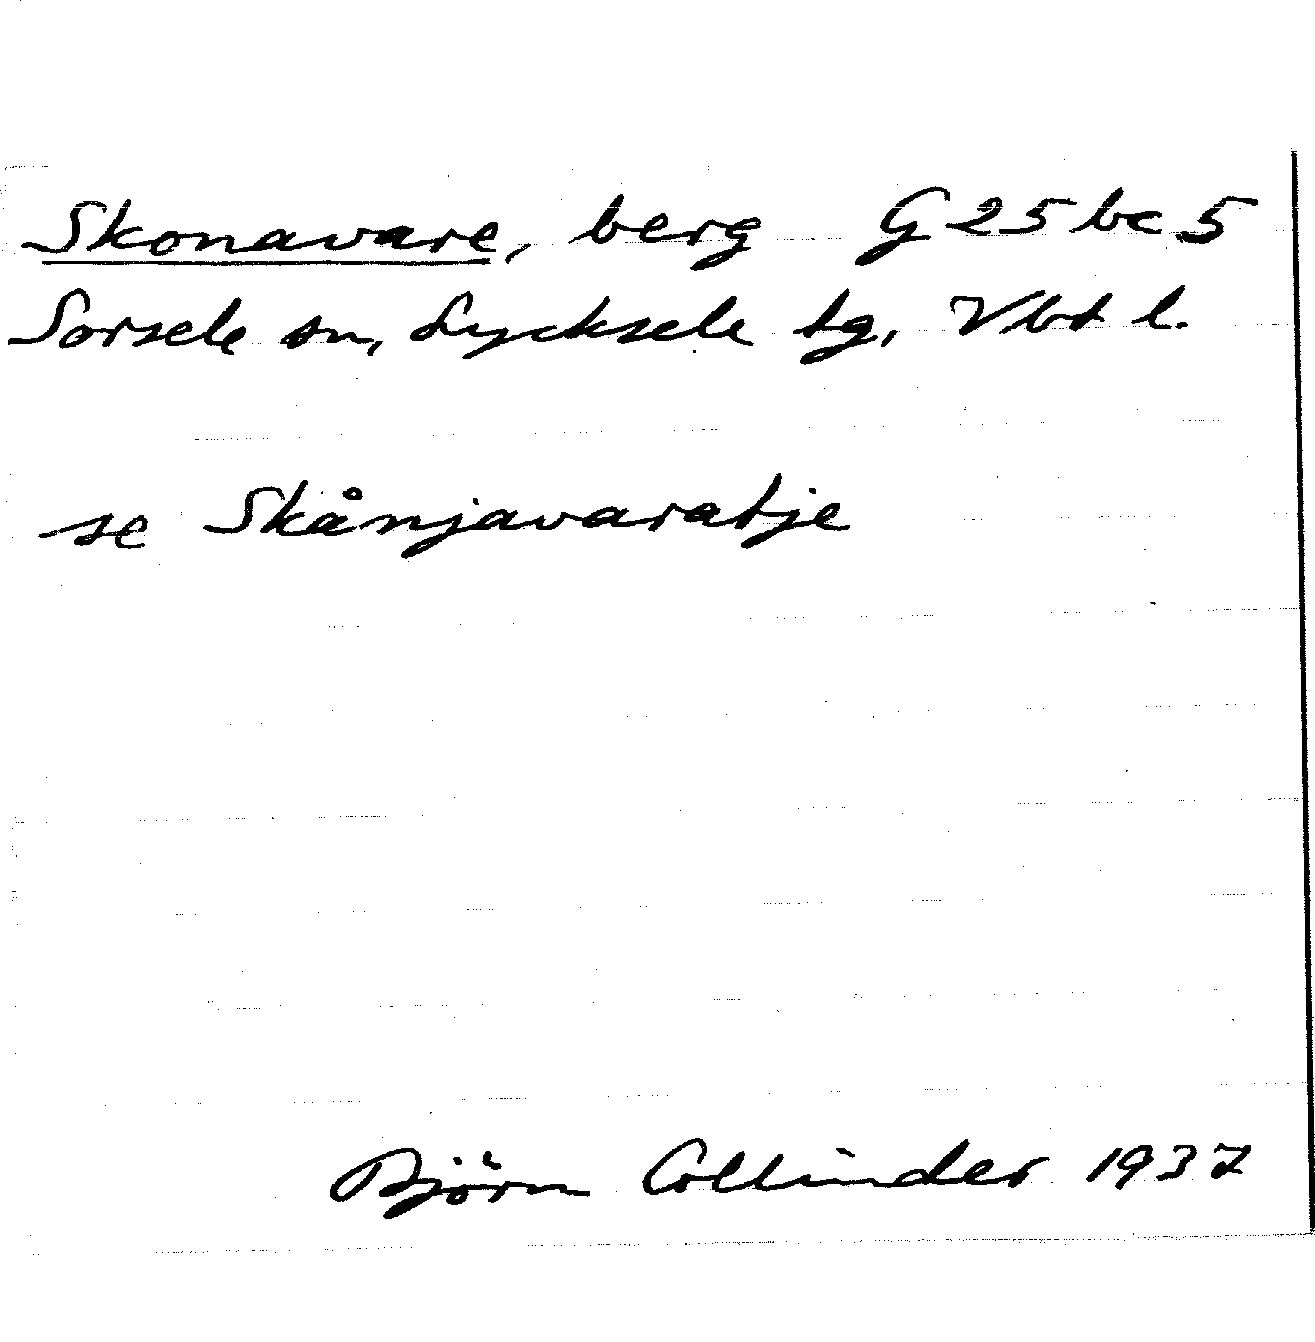 Skonavare, berg G 25 bc 5
Sorsele sn, Lycksele tg, Vbt l.
se Skånjavaratje
Björn Collinder 1937